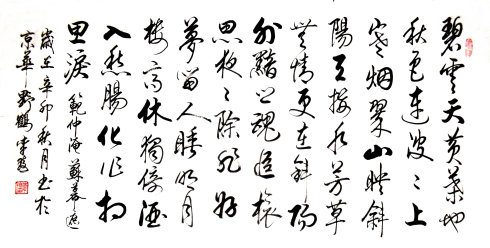 碧雲天黄葉地
秋色連波〻上
寒烟翠山映斜
陽天接水芳草
無情更在斜陽
外黯鄉魂追旅
思夜〻除非好
夢留人睡明月
樓高休獨倚酒
入愁腸化作相
思淚 範仲淹蘇幕遮
歲在辛卯秋月书於
京華野鶴